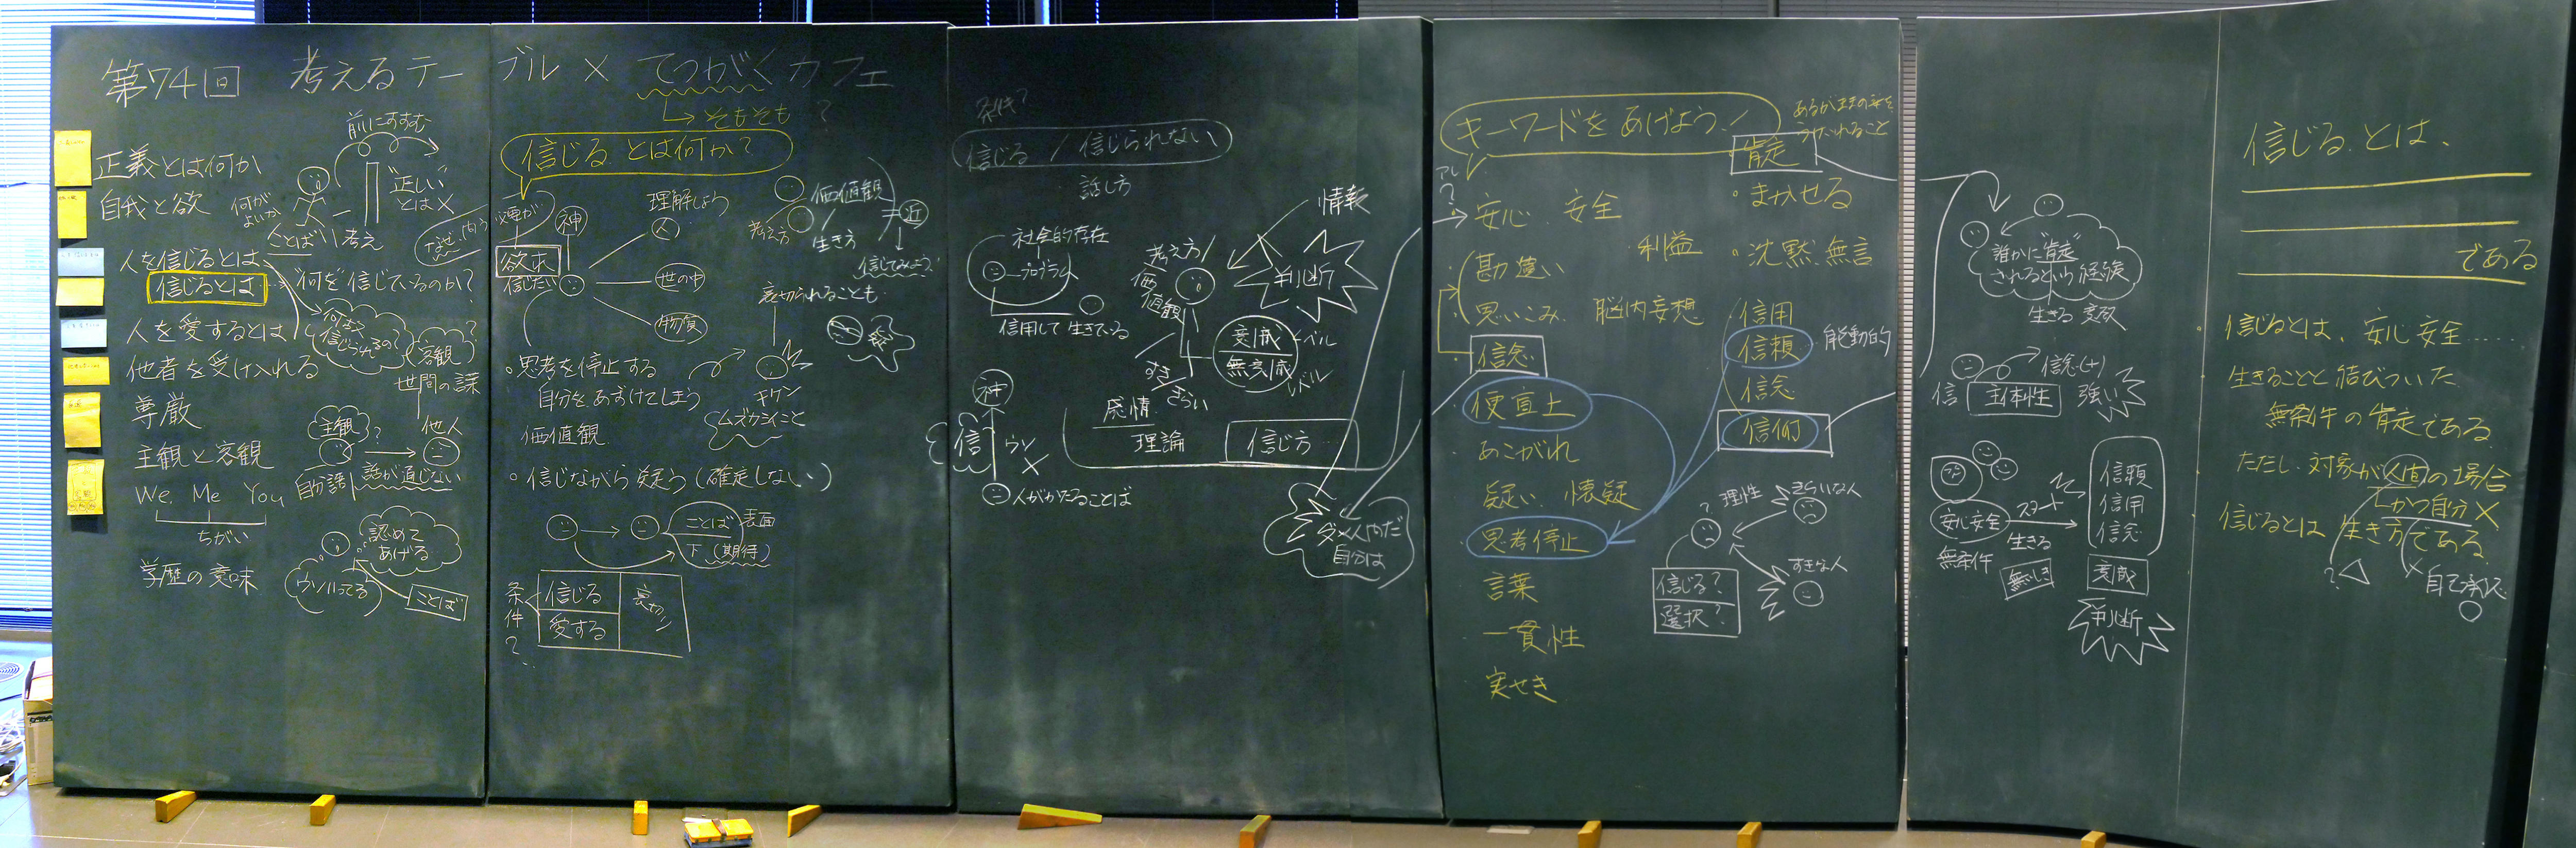 第74回 考えるテーブル × てつがくカフェ
そもそも?
正義とは何か
自我と欲
人を信じるとは
信じるとは
何を信じているのか?
人を愛するとは
他者を受け入れる
尊厳
主観と客観
We, Me You
ちがい
学歴の意味
前にすすむ
"正しい"
とは×
何が
よいか
ことば
考え
客観
世間の課
主観
?
他人
話が通じない
認めて
あげる
ウソいってる
ことば
信じる とは何か?
神
欲求
信じたい
理解しよう
人
世の中
物質
考え方
価値観
生き方
近
信じてみよう
裏切られることも
・思考を停止する
自分をあずけてしまう
キケン
ムズカシイこと
価値観
・信じながら疑う(確定しない)
ことば
表面
下(期待)
条件?
信じる
愛する
裏切り
条件?
信じる / 信じられない
話し方
社会的存在
プログラム
信用して生きている
神
信
ウソ
×
人がかたることば
情報
判断
考え方/
価値観
すき
きらい
賛成
無賛成
レベル
感情
理論
信じ方
ダメ人間だ
自分は
キーワードをあげよう!
あるがままの姿を
うけいれること
肯定
アレ?
安心 安全
・まかせる
勘違い
・利益
・沈黙 無言
思いこみ 脳内妄想
信念
便宜上
あこがれ
疑い 懐疑
思考停止
言葉
一貫性
実せき
信用
信頼
能動的
信念
信仰
?
理性
きらいな人
すきな人
信じる?
選択?
誰かに"肯定"
されるという経験
生きる 意欲
信
主体性
信念(+)
強い
安心安全
無条件
スタート
生きる
信頼
信用
信念
賛成
判断
信じる とは、
である
信じるとは、安心 安全……
生きることと結びついた
無条件の肯定である
ただし、対象が人間の場合
かつ自分×
信じるとは 生き方である
?△
×
自己承認
○